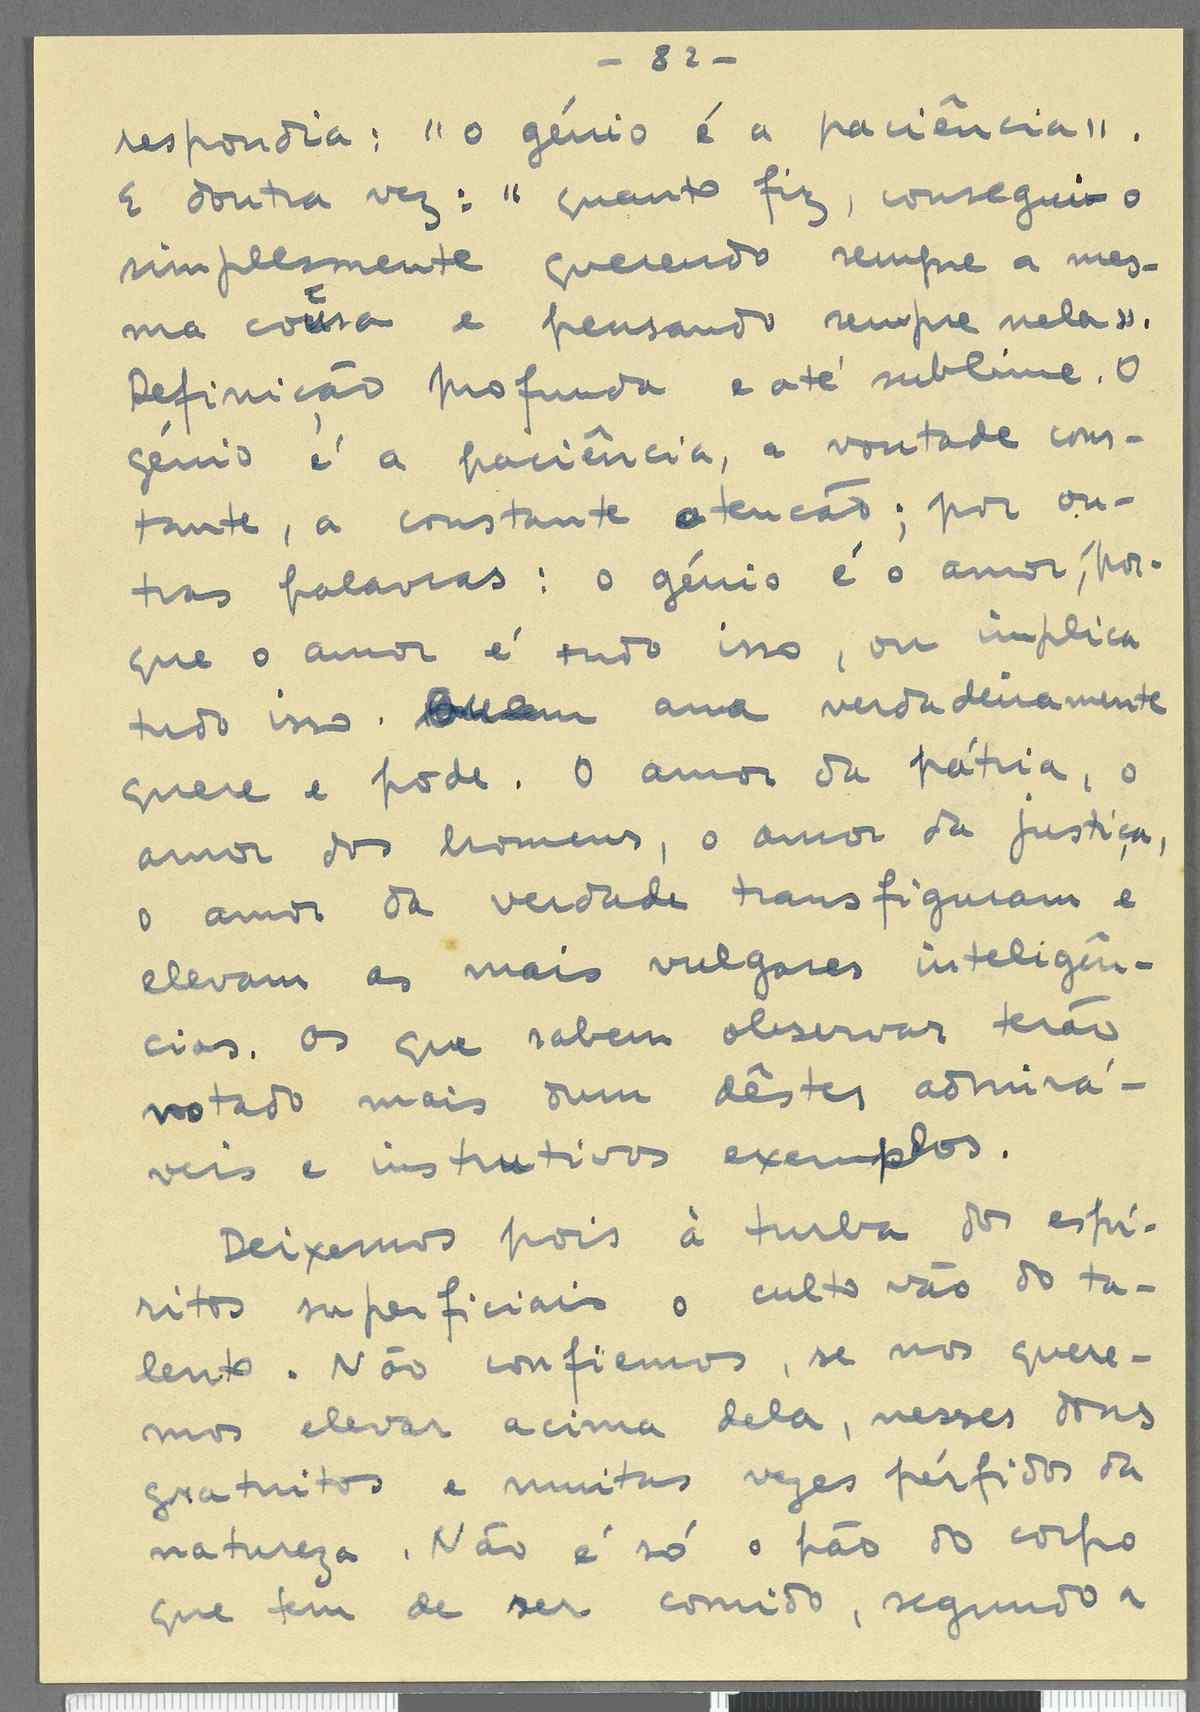 - 82 -
respondia: "o génio é a paciência".
E doutra vez: "quanto fiz, consegui-o
simplesmente querendo sempre a mes-
ma cousa e pensando sempre nela".
Definição profunda e até sublime. O
génio é a paciência, a vontade cons-
tante, a constante atenção; por ou-
tras palavras: o génio é o amor, por-
que o amor é tudo isso, ou implica
tudo isso. Quem ama verdadeiramente
quere e pode. O amor da pátria, o
amor dos homens, o amor da justiça,
o amor da verdade transfiguram e
elevam as mais vulgares inteligên-
cias. Os que sabem observar terão
notado mais dum dêstes admirá-
veis e instrutivos exemplos.
Deixemos pois à turba dos espí-
ritos superficiais o culto vão do ta-
lento. Não confiemos, se nos quere-
mos elevar acima dela, nesses dons
gratuitos e muitas vezes pérfidos da
natureza. Não é só o pão do corpo
que tem de ser comido, segundo a